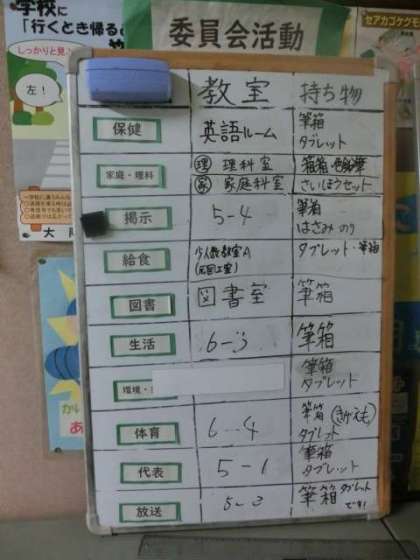 学校に
「行くとき帰る
しっかりと見
左!
委員会活動
セアカゴケグモ
教室 持ち物
保健 英語ルーム 筆箱
タブレット
家庭・理科 理 理科室 筆箱
家 家庭科室 さいほうセット
掲示 5-4 筆箱
はさみ のり
給食 少人数教室A タブレット・筆箱
図書 図書室 筆箱
生活 6-3 筆箱
環境・ 筆箱
タブレット
体育 6-4 筆箱 きがえも
タブレット
代表 5-1 筆箱
タブレット
放送 筆箱 タブレット
です!